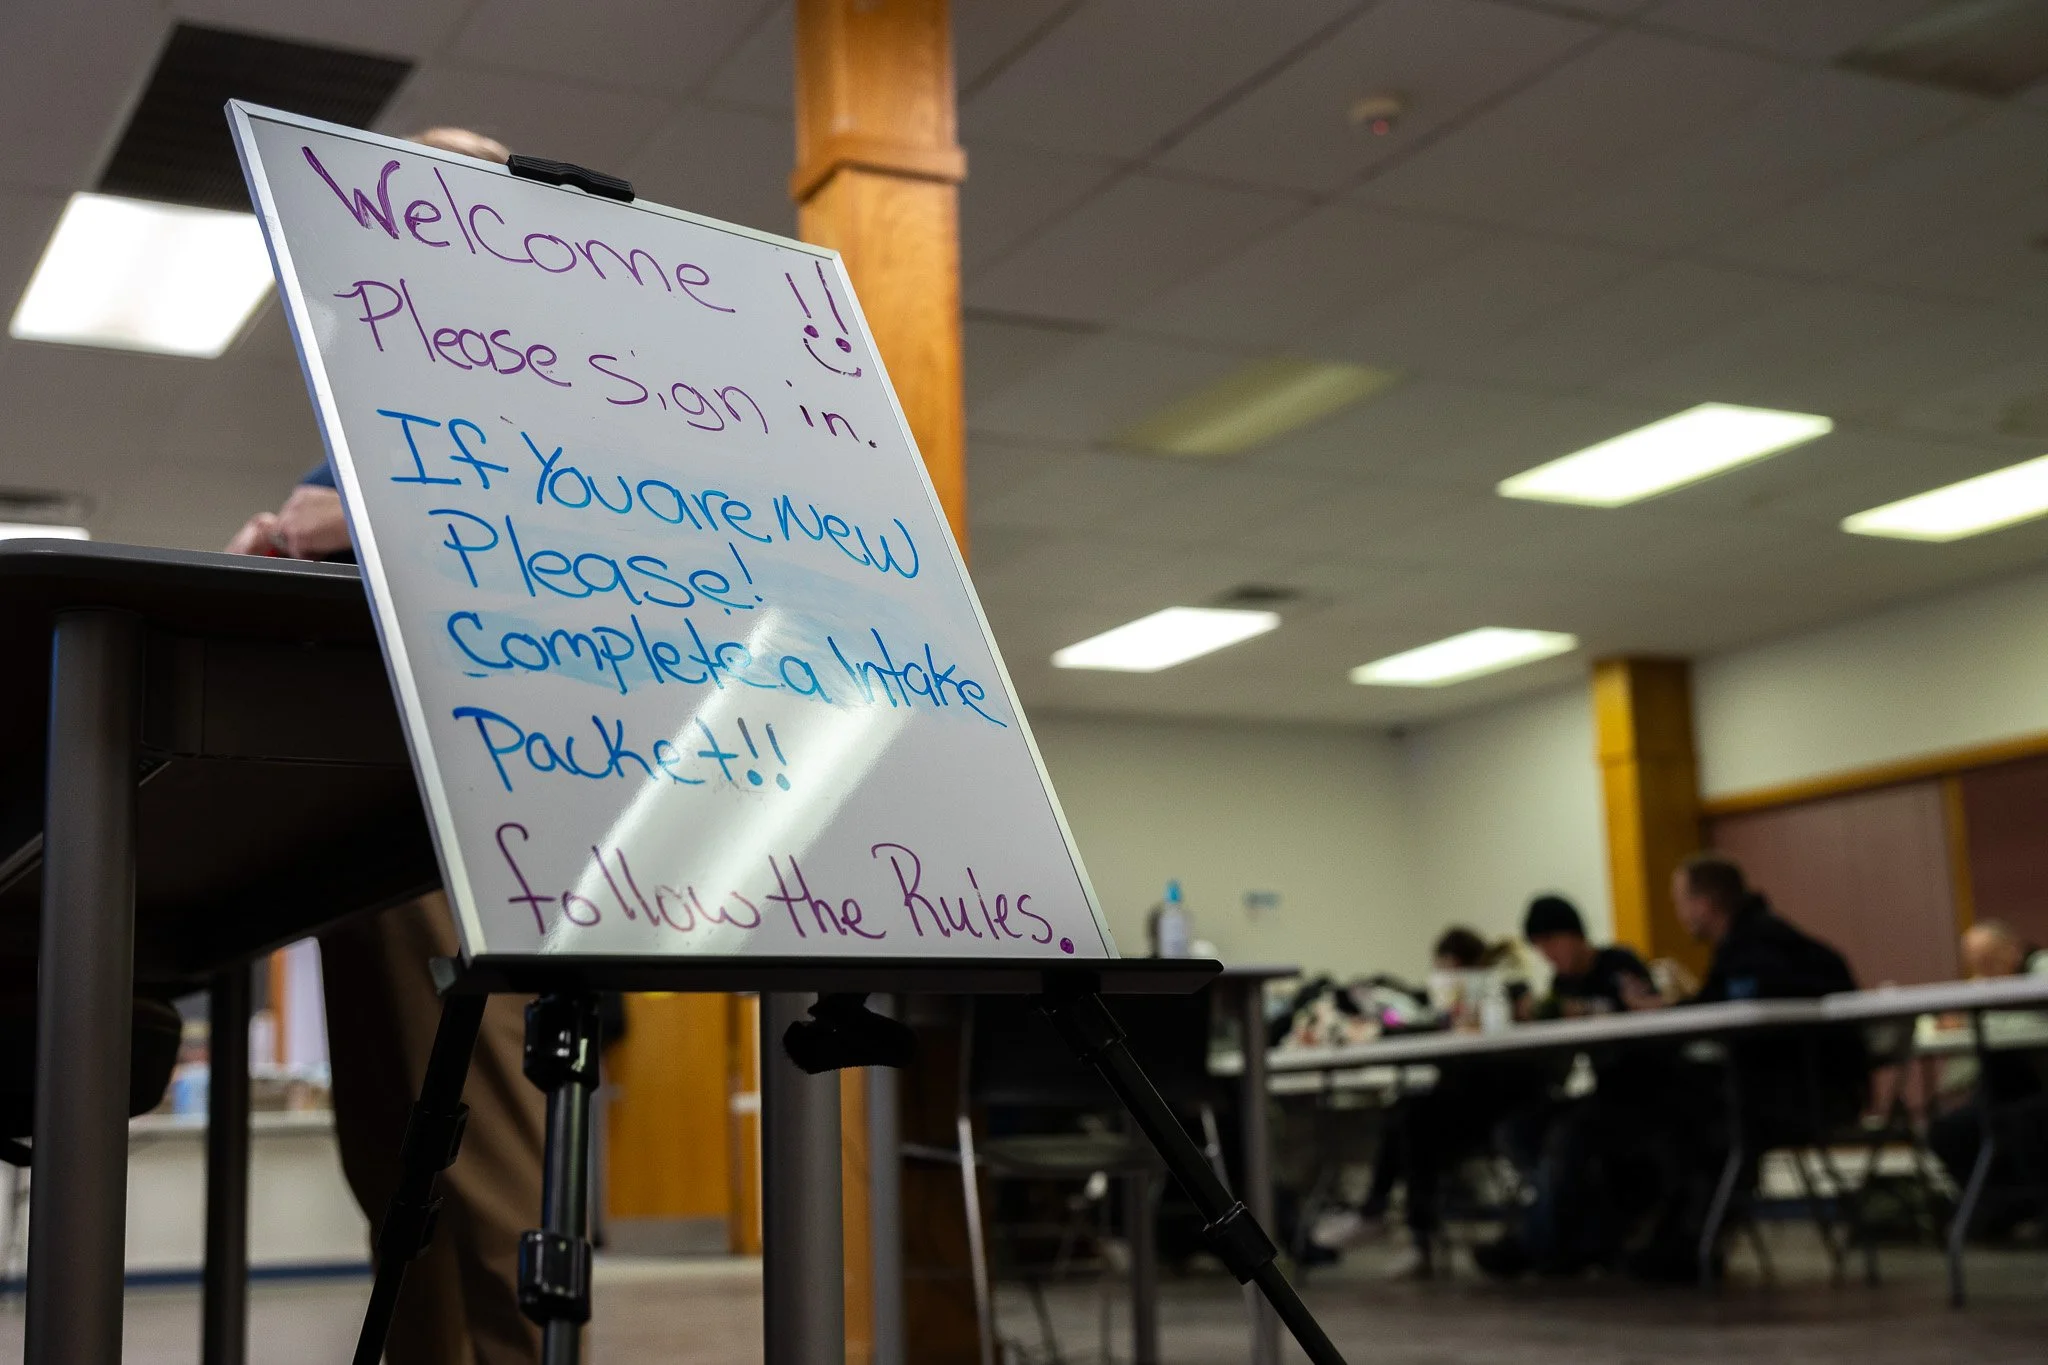 Welcome !!
Please sign in.
If You are New
Please!
Complete a Intake
Packet!!
follow the Rules.